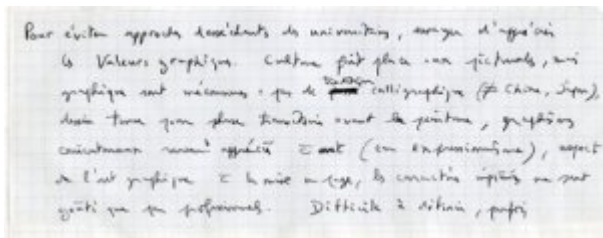 Pour éviter approche desséchante des universitaires, essayer d'apprécier
les Valeurs graphiques. Culture fait place aux picturales, mais
graphiques sont méconnues : pas de tradition calligraphique (≠ Chine, Japon),
dessin tenu pour phase transitoire avant la peinture, graphismes
rarement appréciés (sauf expressionnisme), aspect
de l'art graphique la mise en page, les caractères ne sont
goûtés que par professionnels. Difficile à définir, parfois